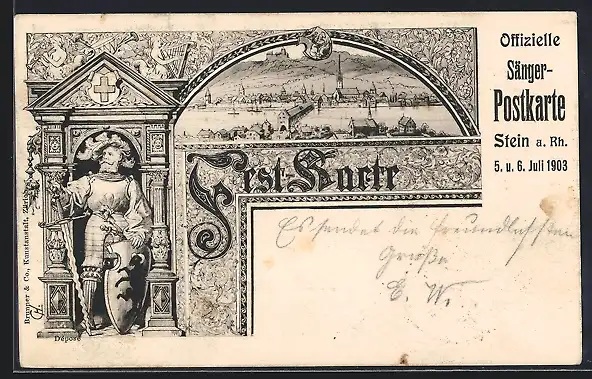 Offizielle
Sänger-
Postkarte
Stein a. Rh.
5. u. 6. Juli 1903
Fest-Karte
Es sendet die freundlichsten
Grüße
E. W.
Brunner & Co., Kunstanstalt, Zürich
Déposé